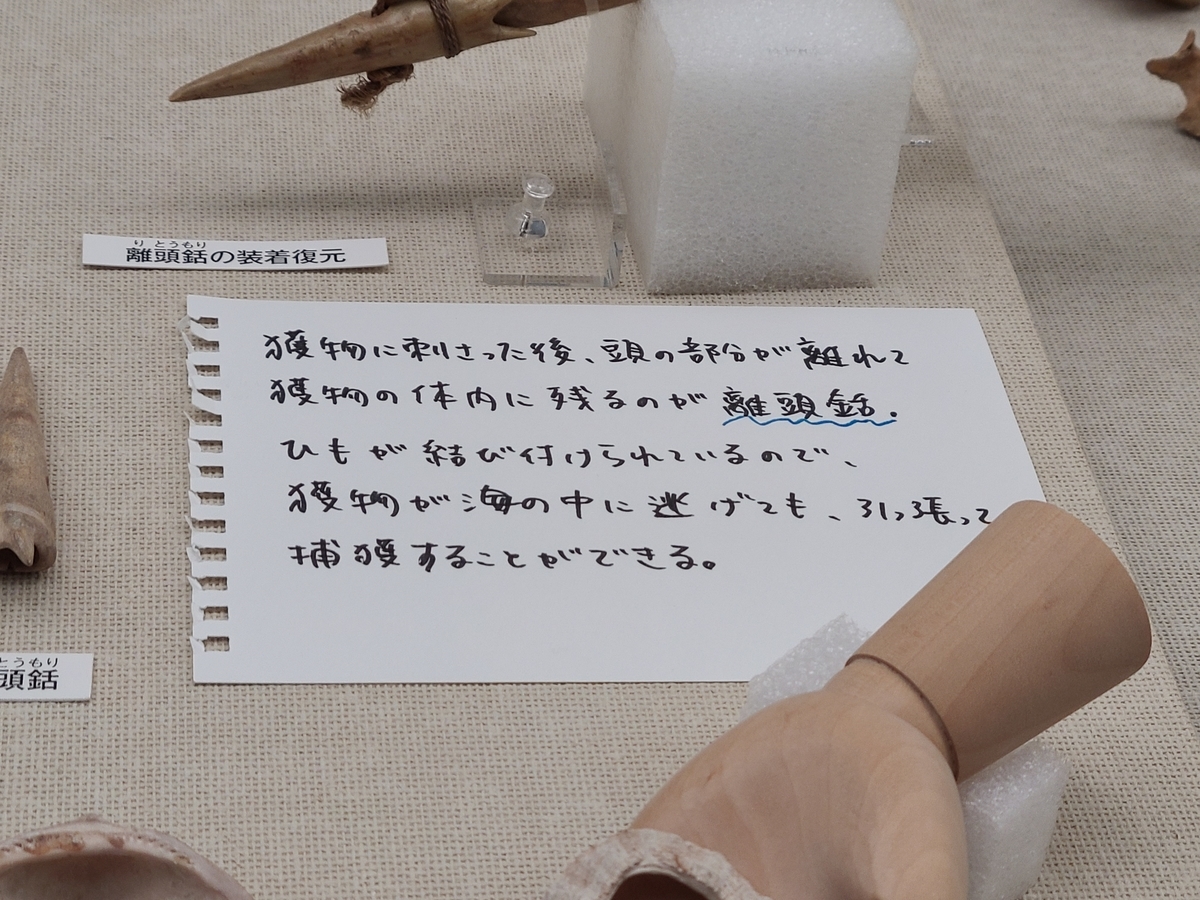 り とうもり
離頭銛の装着復元
獲物に刺さった後、頭の部分が離れて
獲物の体内に残るのが離頭銛.
ひもが結び付けられているので、
獲物が海の中に逃げても、引っ張って
捕獲することができる。
とうもり
頭銛